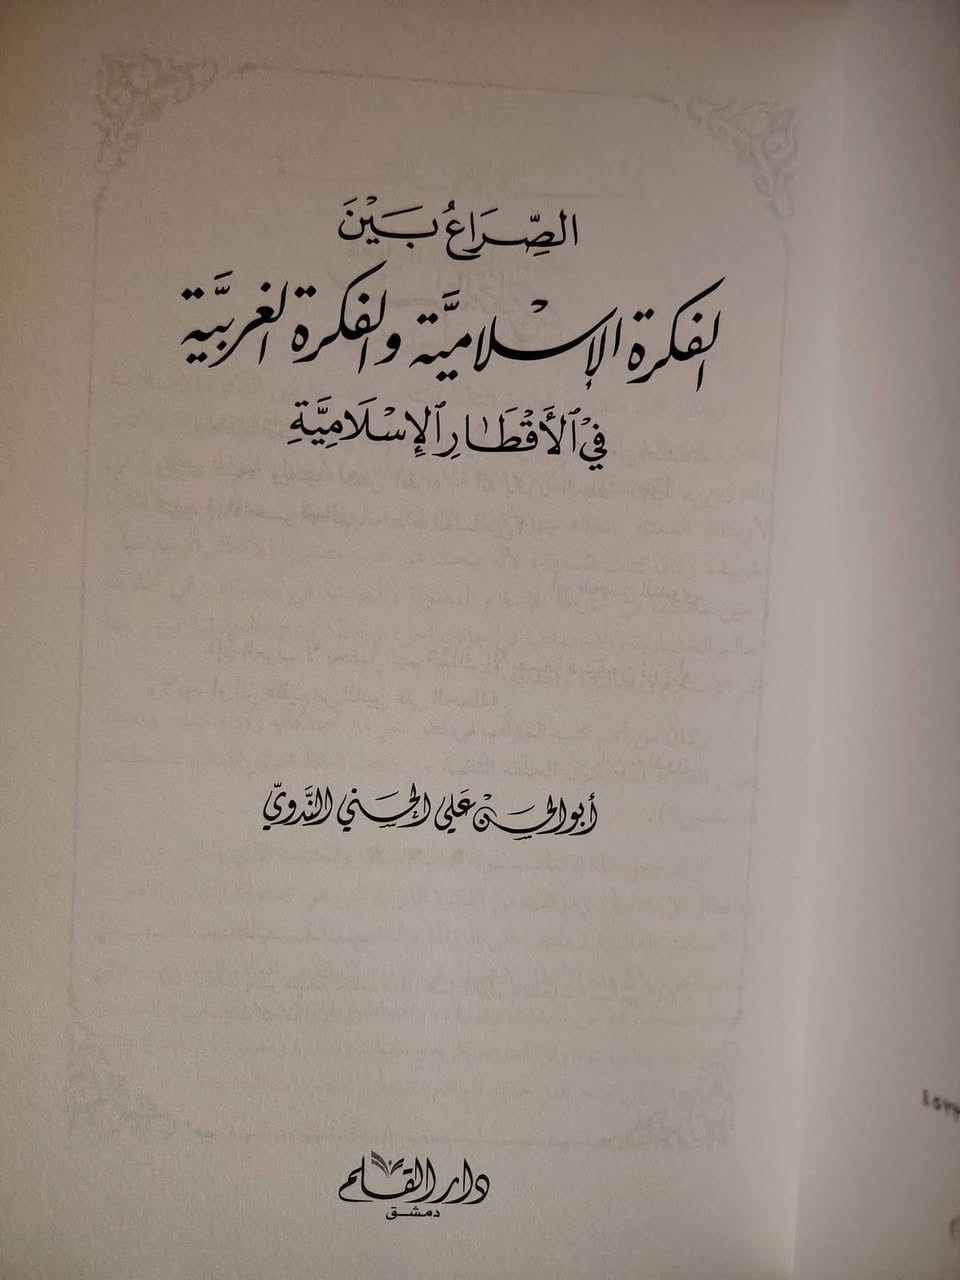 الصِّرَاعُ بَيْنَ
الفكرة الإسْلاميَّة والفكرة الغربيَّة
فِي ٱلْأَقْطَارِ ٱلْإِسْلَامِيَّةِ
أبو الحسَن عَلي الحسَني النَّدويّ
دار القلم
دمشق